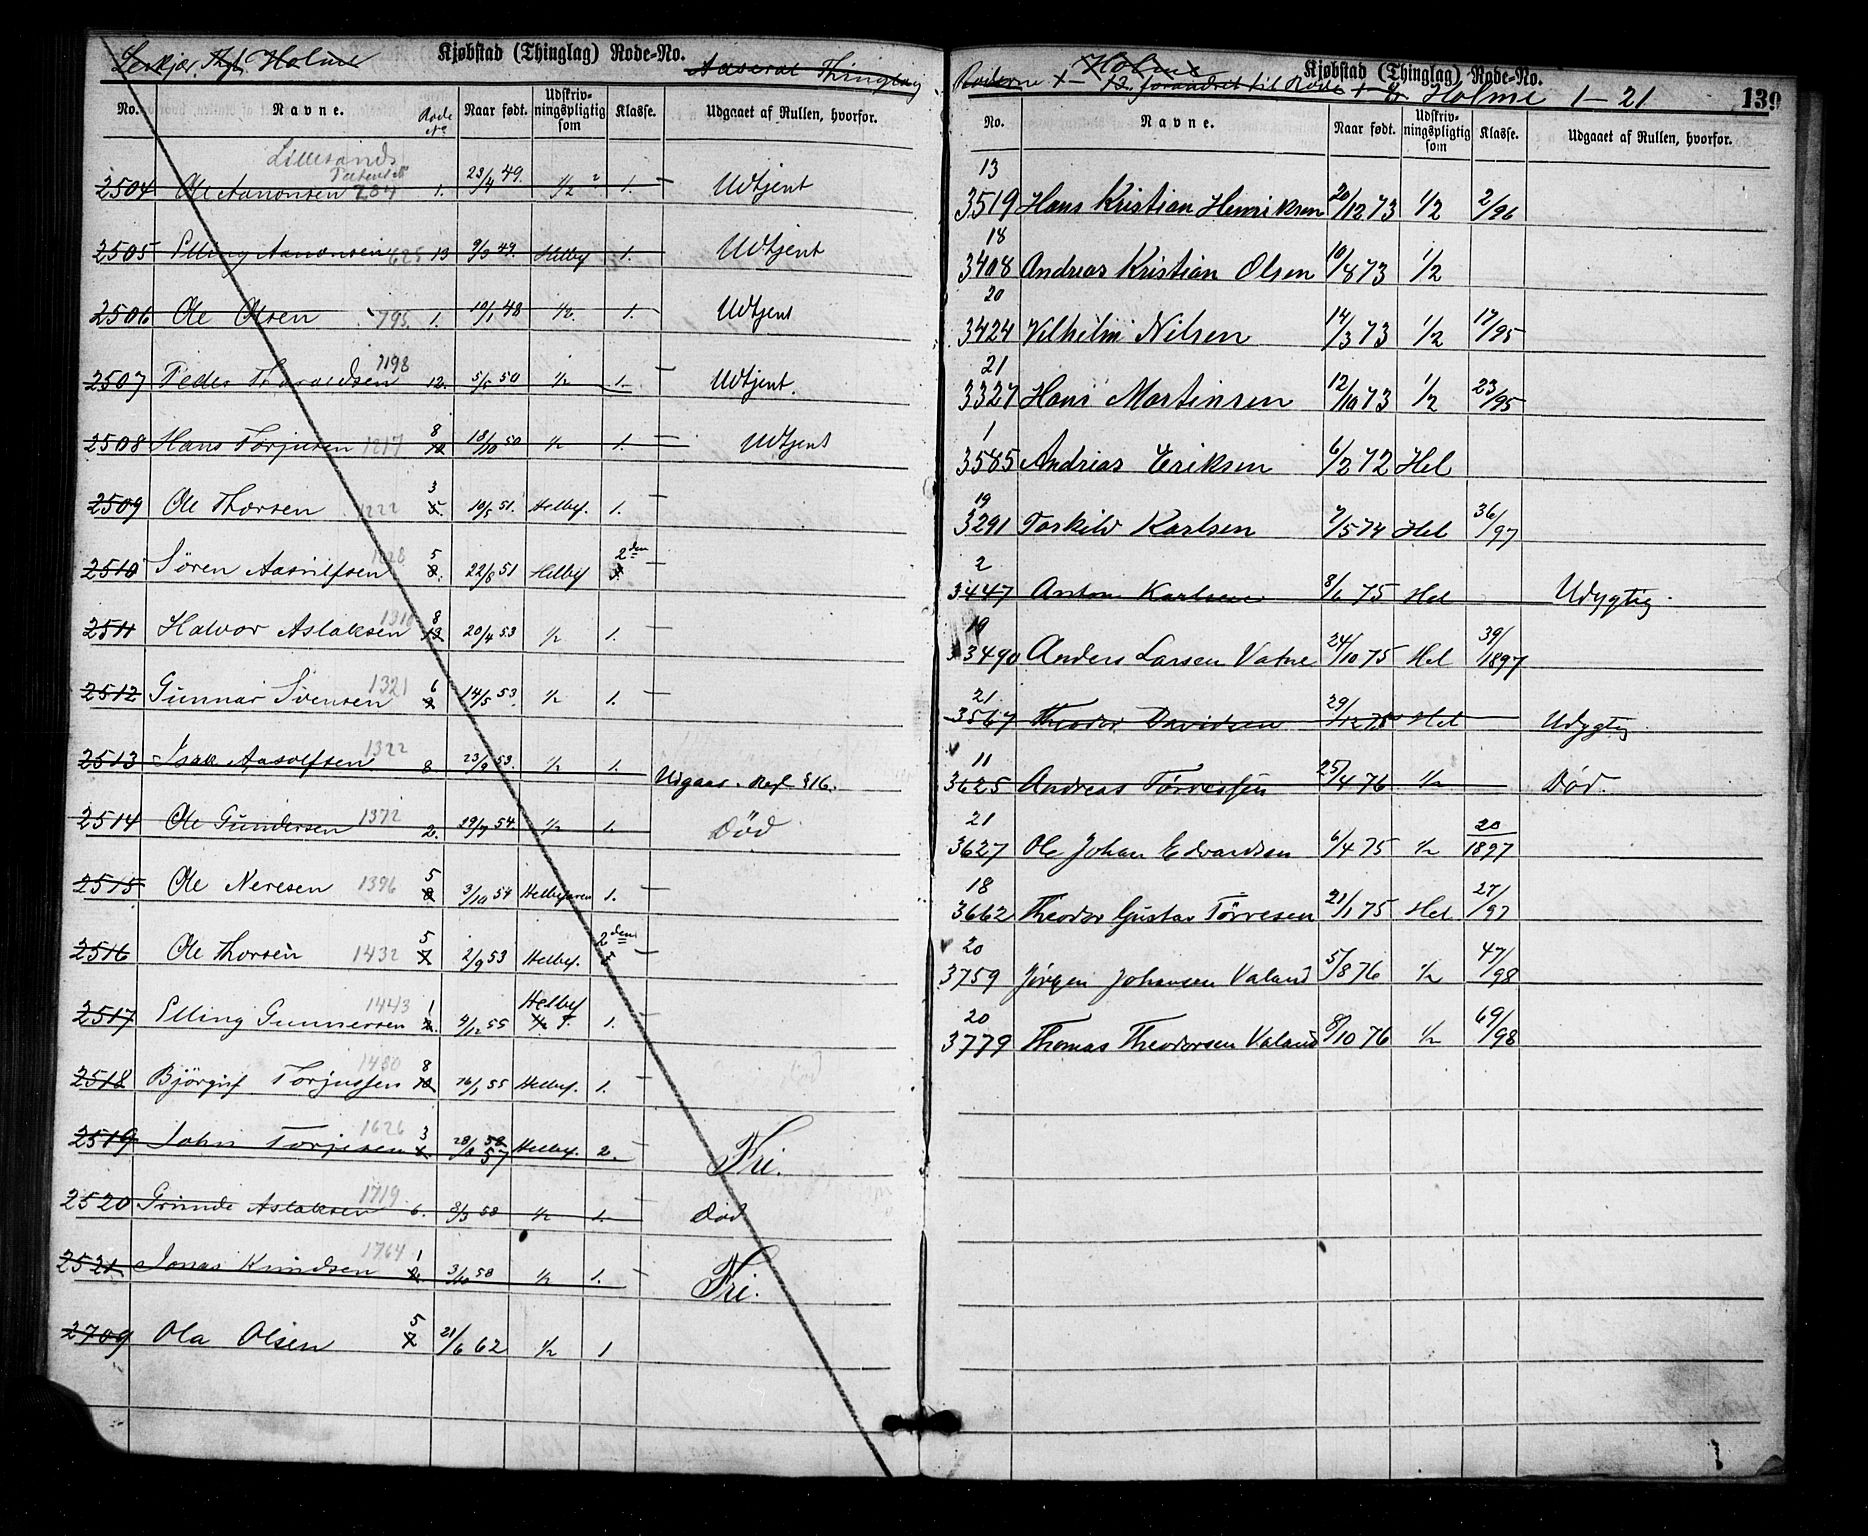 Holme Kjøbstad (Thinglag) Rode-No. Aaseral Thinglag
No. Navne. Rode No Naar født. Udskrivningspligtig som Klasse. Udgaaet af Rullen, hvorfor.
Lillesands
2504 Ole Aanonsen 284 1. 23/4 49. 1/2 1. Udtjent
2505 Elling Aanonsen 625 13 9/3 49. Helbef 1. Udtjent
2506 Ole Olsen 795 1. 10/1 48 1/2 1. Udtjent
2507 Peder Thoraldsen 1198 12. 5/5 50 1/2 1. Udtjent.
2508 Hans Torjusen 1217 8 10 18/10 50 1/2 1. Udtjent
2509 Ole Thorsen 1222 3 5. 10/5 51. Helbef. 1.
2510 Søren Aasulfsen 1228 5 8. 22/8 51 Helbef 2den
2511 Halvor Aslaksen 1310 8 12 20/4 53 1/2 1.
2512 Gunnar Svensen 1321 6 14/5 53. 1/2 1.
2513 Isak Aasolfsen 1322 8 23/9 53. 1/2 1. Udgaar. Ref § 16.
2514 Ole Gundersen 1372 2. 29/7 54. 1/2 1. Død
2515 Ole Neresen 1396 5 8 3/10 54 Helbefaren 1.
2516 Ole Thorsen 1432 5 7 2/9 53 Helbef. 2den
2517 Elling Gunnersen 1443 1 2. 4/12 55 Helbef 1/2 1.
2518 Bjørguf Torjussen 1450 8 10 16/1 55 Helbef. 1.
2519 John Torjesen 1626 3 28/8 58 57 Helbef. 2. Fri.
2520 Grunde Aslaksen 1719 6. 8/3 58 1/2 1. Død
2521 Jonas Knudsen 1764 1 2. 3/10 58 1/2 1. Fri.
2709 Ola Olsen 5 7 21/6 62 1/2 1
Holme Kjøbstad (Thinglag) Rode-No.
Roderne 1 – 12 forandret til Rode Holme 1–21 139
No. Navne. Naar født. Udskrivningspligtig som Klasse. Udgaaet af Rullen, hvorfor.
13
3519 Hans Kristian Henriksen 20/12 73 1/2 2/96
18
3408 Andreas Kristian Olsen 10/8 73 1/2
20
3424 Vilhelm Nilsen 14/3 73 1/2 17/95
21
3327 Hans Martinsen 12/10 73 1/2 23/95
1
3585 Andreas Eriksen 6/2 72 Hel
19
3291 Taskild Karlsen 7/5 74 Hel 36/97
2
3447 Anton Karlsen 8/1 75 Hel Udygtig.
19
3490 Anders Larsen Vatne 24/10 75 Hel 39/1897
21
3567 Theodor Davidsen 29/12 75 Hel Udygtig
11
3625 Andreas Tørressen 25/4 76 1/2 Død.
21
3627 Ole Johan Edvardsen 6/4 75 1/2 20/1897
18
3662 Theodor Gustav Tørresen 21/1 75 Hel 27/97
20
3759 Jørgen Johansen Valand 5/8 76 1/2 47/98
20
3779 Thomas Theodorsen Valand 8/10 76 1/2 69/98